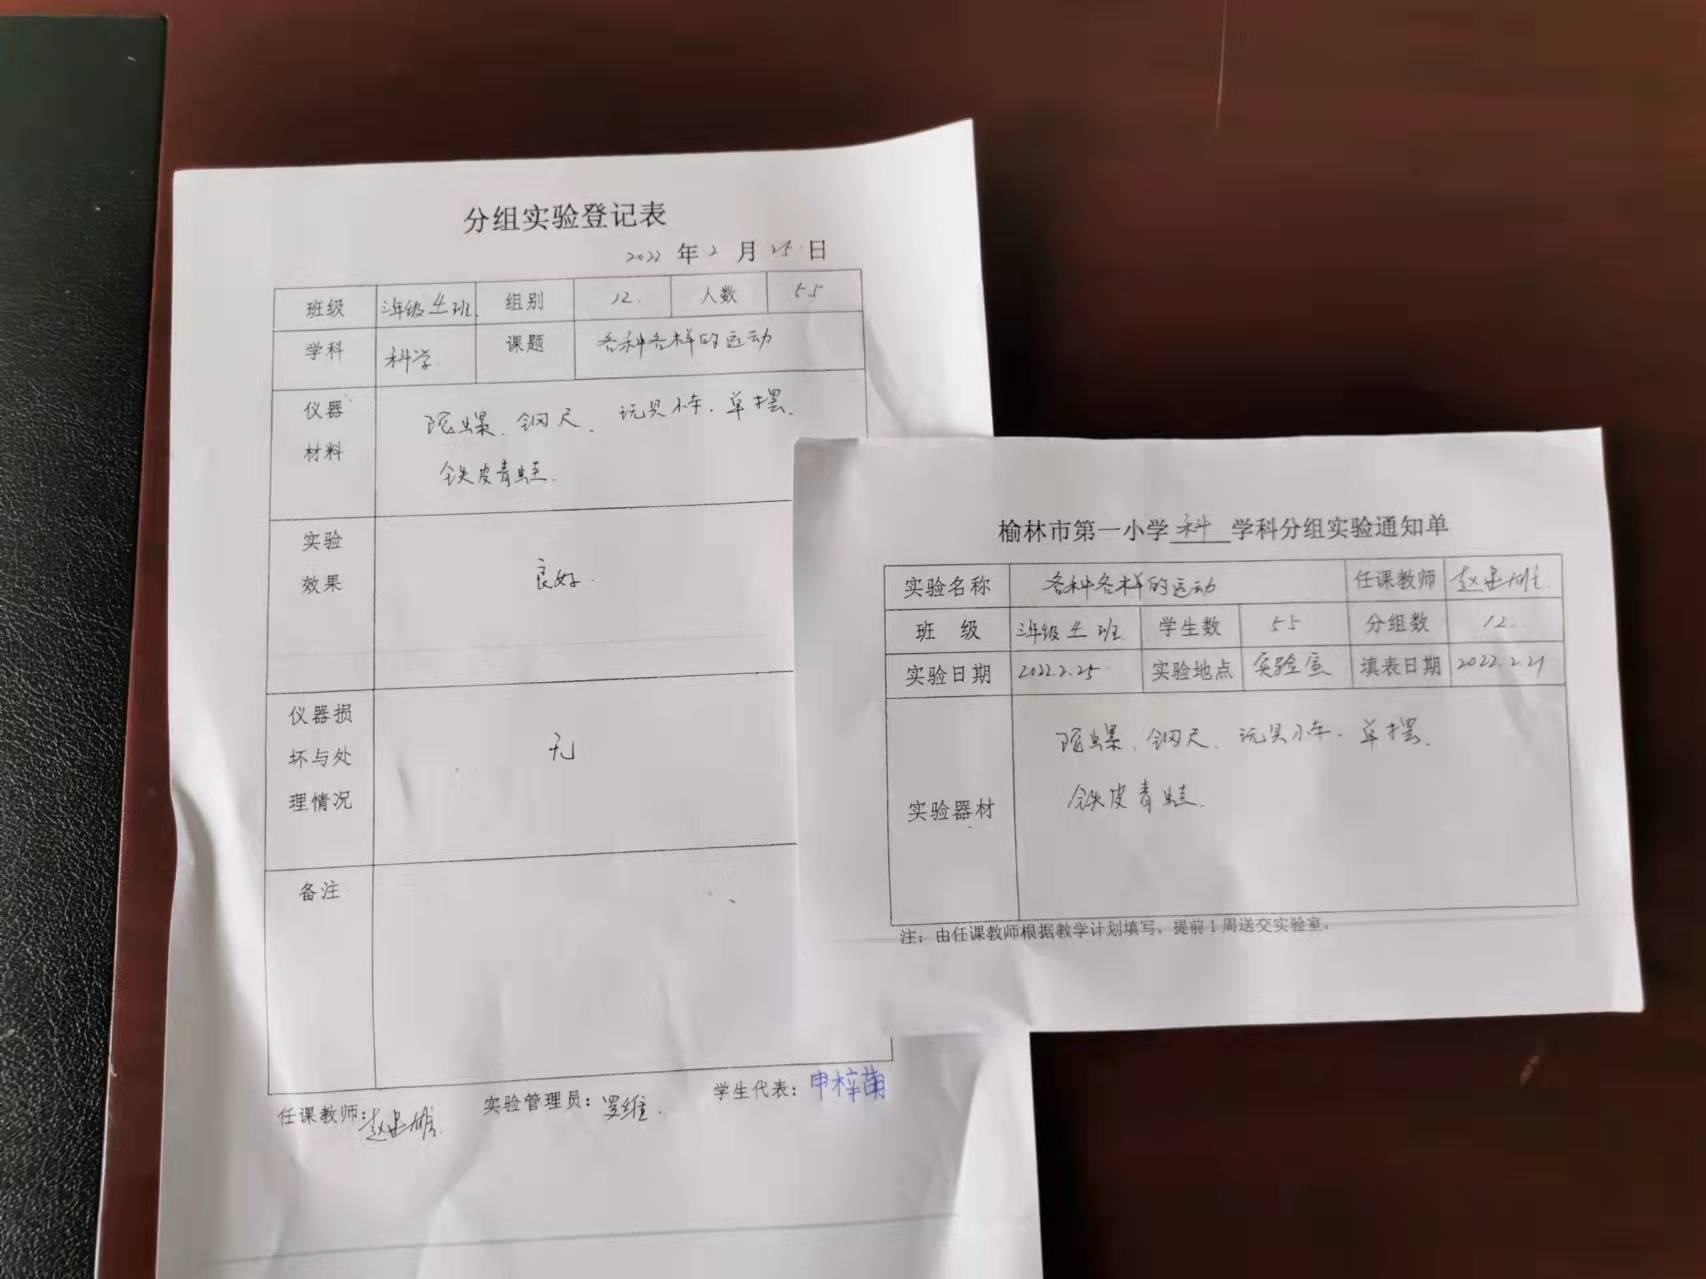 分组实验登记表
2022 年 2 月 25 日
班级 三年级4班 组别 12. 人数 55
学科 科学 课题 各种各样的运动
仪器材料 陀螺、钢尺、玩具小车、单摆、
铁皮青蛙.
实验效果 良好.
仪器损坏与处理情况 无
备注
任课教师: 赵 实验管理员: 罗维. 学生代表: 申梓萌
榆林市第一小学 科 学科分组实验通知单
实验名称 各种各样的运动 任课教师 赵
班 级 三年级4班 学生数 55 分组数 12.
实验日期 2022.2.25 实验地点 实验室 填表日期 2022.2.21
实验器材 陀螺、钢尺、玩具小车、单摆、
铁皮青蛙.
注：由任课教师根据教学计划填写，提前1周送交实验室。